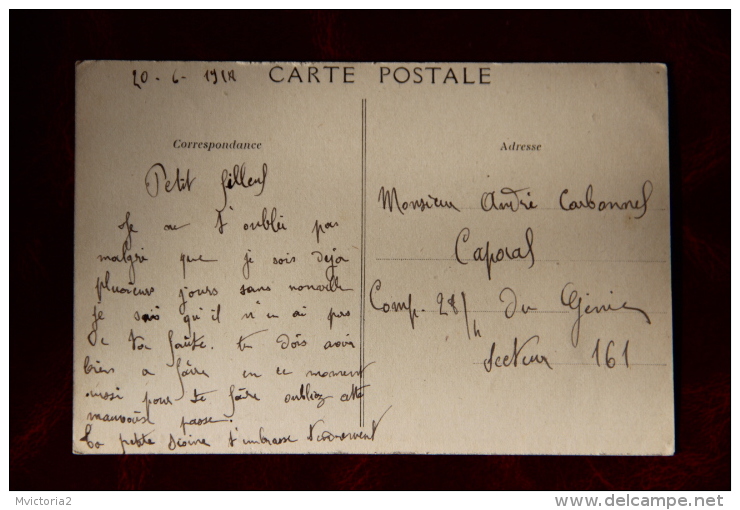 20 - 6 - 1918
CARTE POSTALE
Correspondance
Petit filleul
Je ne t'oublie pas
malgré que je sois déjà
plusieurs jours sans nouvelle
je sais qu'il n'en ai pas
de ta faute. tu dois avoir
bien a faire en ce moment
aussi pour te faire oublier cette
mauvaise passe.
Ta petite t'embrasse
Adresse
Monsieur André Carbonnel
Caporal
Comp. 28/ du Génie
Secteur 161
Mvictoria2
www.delcampe.net